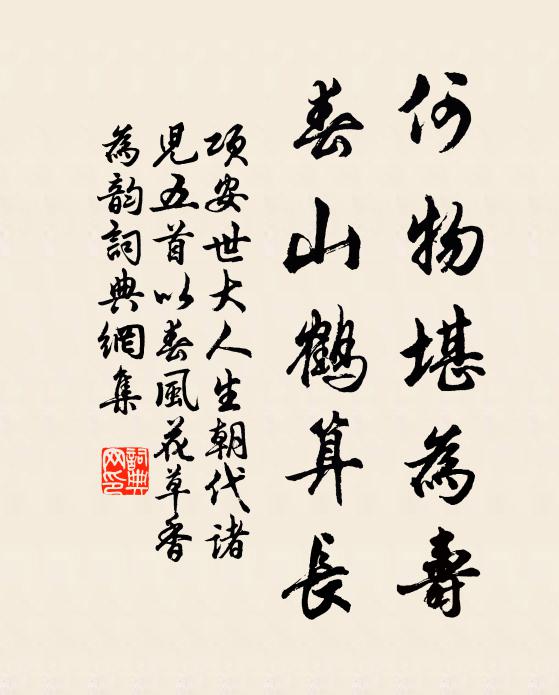 何物堪為壽
春山鶴算長
項安世大人生朝代諸
兒五首以春風花草香
為韵詞典網集
詞典网印